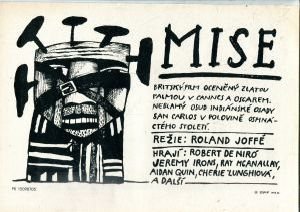 MISE
BRITSKÝ FILM OCENĚNÝ ZLATOU
PALMOU V CANNES A OSCAREM.
NEBLAHÝ OSUD INDIÁNSKÉ OSADY
SAN CARLOS V POLOVINĚ OSMNÁ-
CTÉHO STOLETÍ.
REŽIE: ROLAND JOFFÉ
HRAJÍ: ROBERT DE NIRO
JEREMY IRONS, RAY MCANALLAY,
AIDAN QUIN, CHERIE ZUNGHIOVÁ,
A DALŠÍ